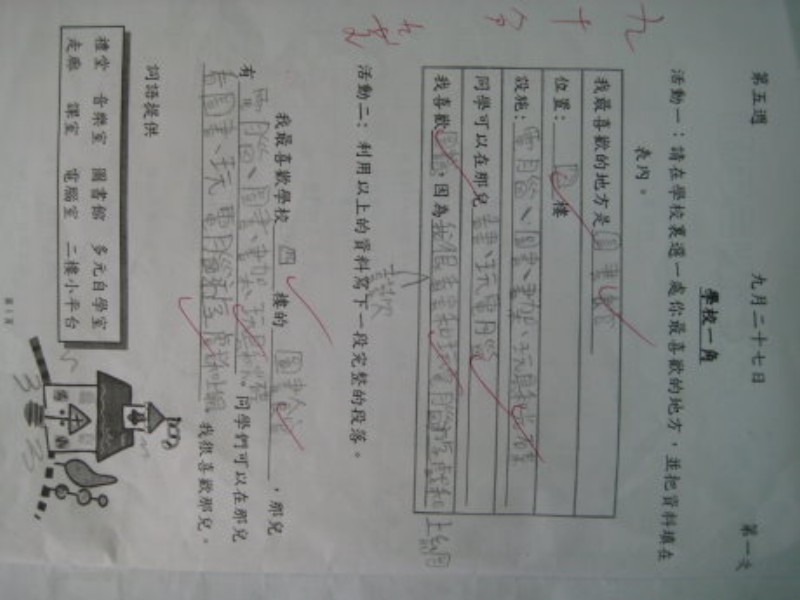 第五週　九月二十七日　第一次
學校一角
活動一：請在學校裏選一處你最喜歡的地方，並把資料填在
表內。
我最喜歡的地方是圖書館
位置：四樓
設施：電腦、圖書、書架、玩具和
同學可以在那兒看書、玩電腦
我喜歡圖書館，因為我很喜歡看書和玩電腦遊戲和上網
九十分
活動二：利用以上的資料寫下一段完整的段落。
我最喜歡學校四樓的圖書館，那兒
有電腦、圖書、書架、玩具和。同學們可以在那兒
看圖書、玩電腦遊戲和上網。我很喜歡那兒。
詞語提供
禮堂　音樂室　圖書館　多元自學室
走廊　課室　電腦室　二樓小平台